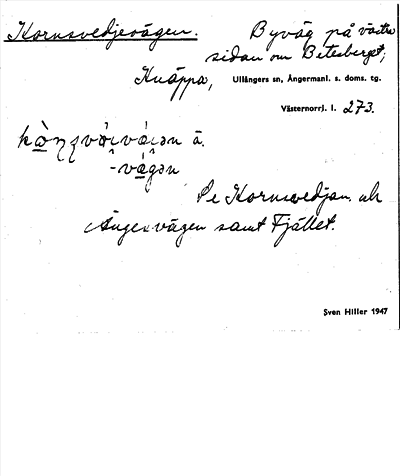 Kornsvedjevägen.
Byväg på västra
sidan om Betesberget,
Knäppa, Ullångers sn, Ångermanl. s. doms. tg.
Västernorrl. l. 273.
-vágən
Se Kornsvedjan och
Ängesvägen samt Fjället.
Sven Hiller 1947